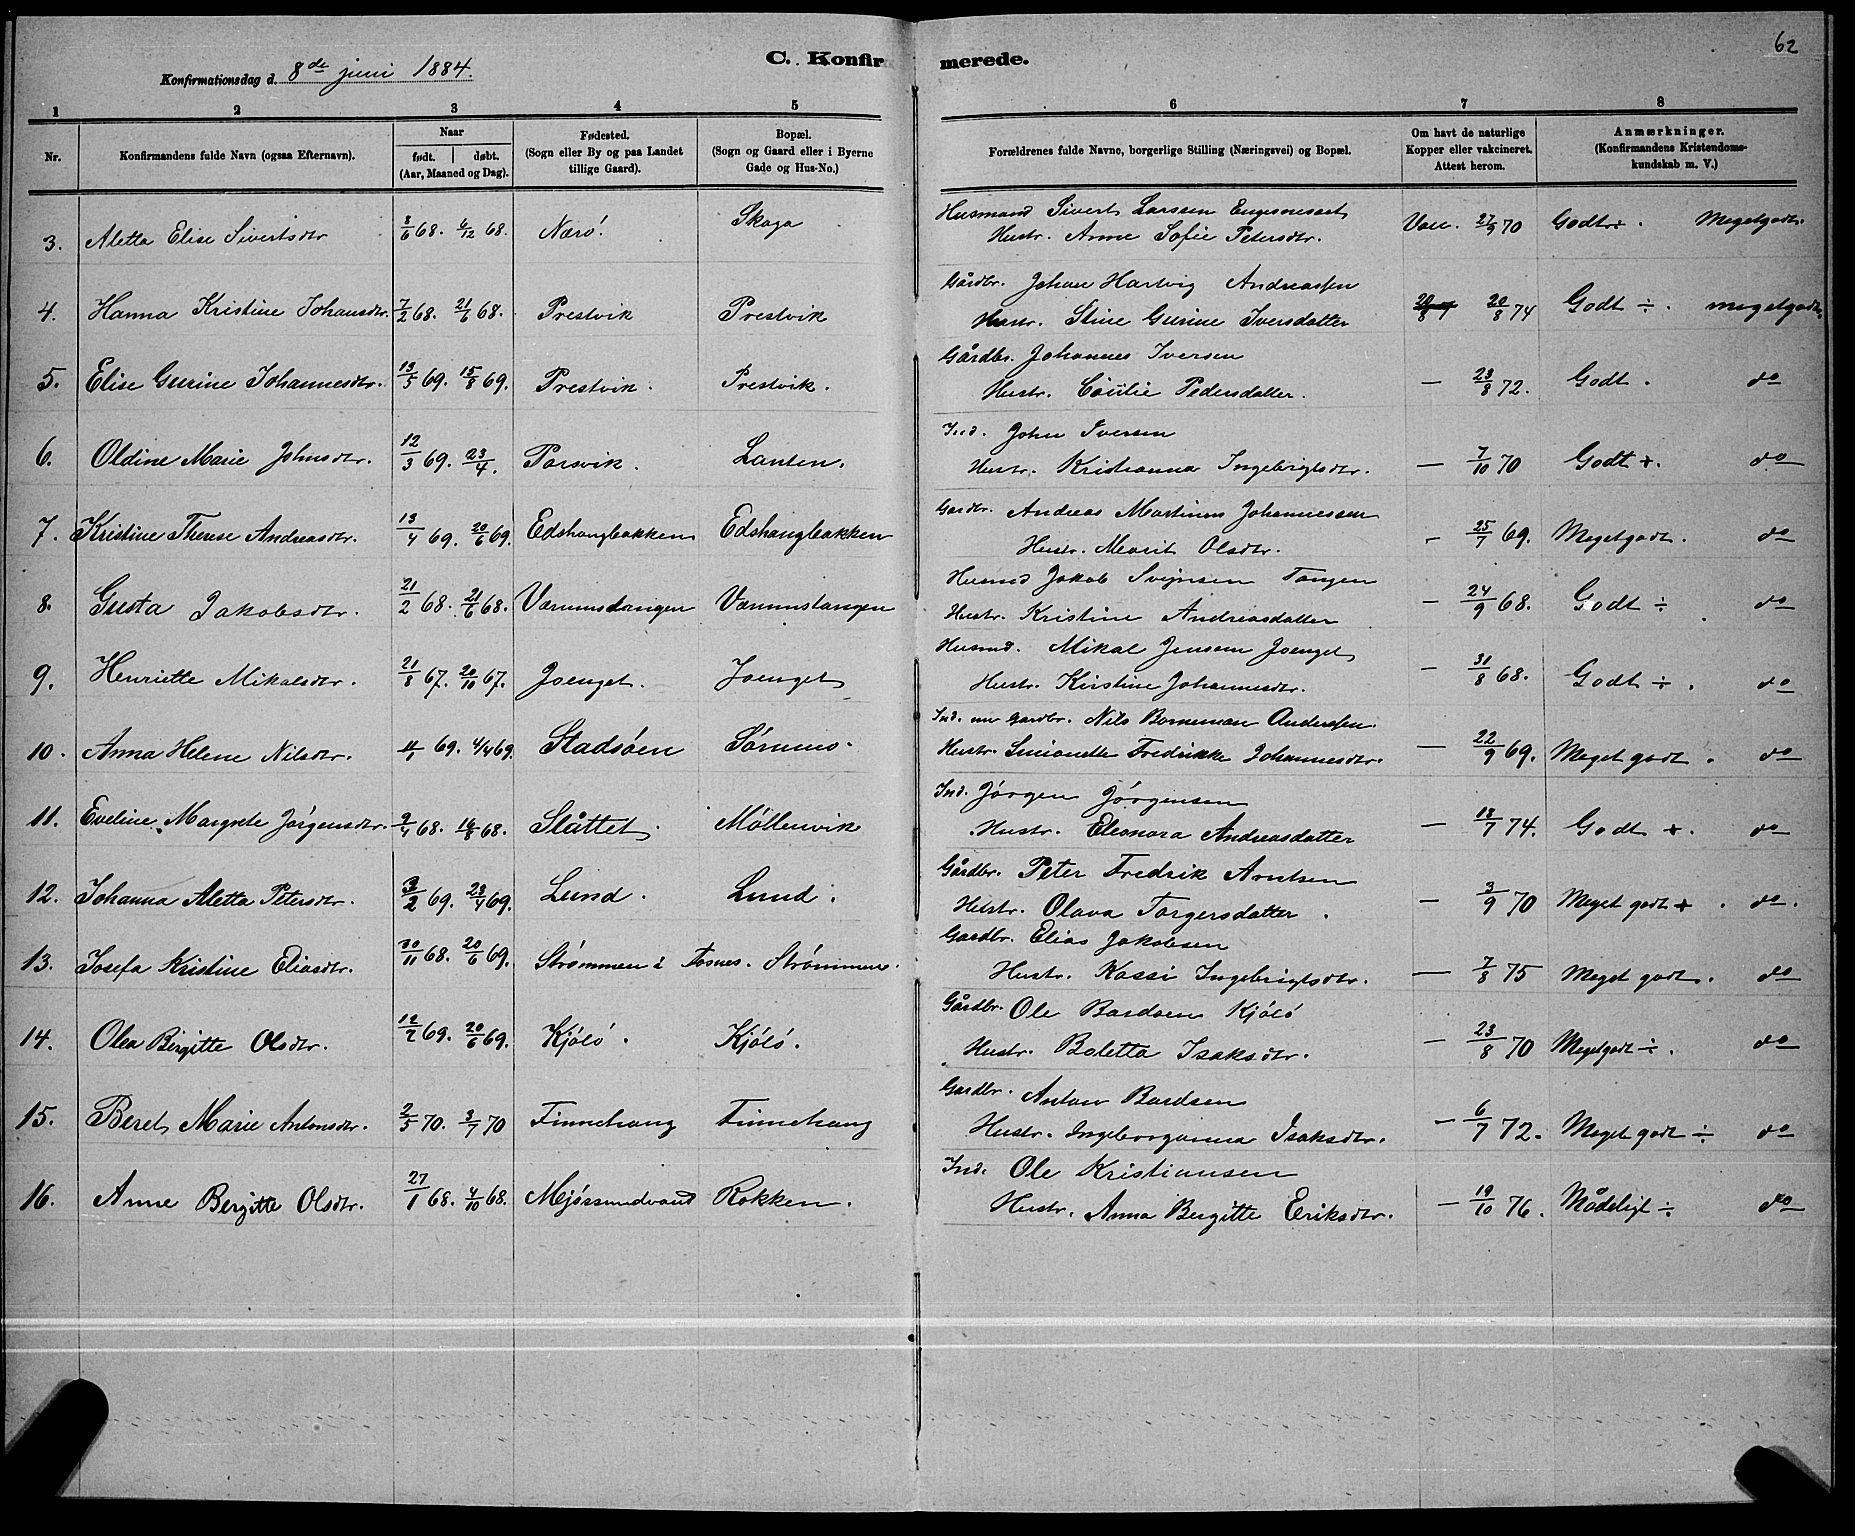 62
C. Konfirmerede.
Konfirmationsdag d. 8de juni 1884.
1 2 3 4 5 6 7 8
Nr.
Konfirmandens fulde Navn (ogsaa Efternavn).
Naar
født. | døbt.
(Aar, Maaned og Dag).
Fødested.
(Sogn eller By og paa Landet
tillige Gaard).
Bopæl.
(Sogn og Gaard eller i Byerne
Gade og Hus-No.)
Forældrenes fulde Navne, borgerlige Stilling (Næringsvei) og Bopæl.
Om havt de naturlige
Kopper eller vakcineret.
Attest herom.
Anmærkninger.
(Konfirmandens Kristendoms-
kundskab m. V.)
Husmand Sivert Larssen
3. Aletta Elise Sivertsdtr 8/6 68. 6/12 68. Nærö. Skaga Hustr. Anne Sofie Petersdtr. Vac. 27/9 70 Godt ÷. Megetgodt.
Gårdbr. Johan Hartvig Andreassen
4. Hanna Kristine Johansdtr. 7/2 68. 21/6 68. Prestvik Prestvik Hustr. Stine Gurine Iversdatter 20/8 74 Godt ÷. megetgodt.
Gårdbr. Johannes Iversen
5. Elise Gurine Johannesdtr. 13/5 69. 15/8 69. Prestvik. Prestvik. Hustr. Cecilie Pedersdatter. — 23/8 72. Godt. do
Ind. John Iversen
6. Oldine Marie Johnsdtr. 12/3 69. 23/4. Parsvik. Lanten. Hustr. Kristianna Ingebrigtsdtr. — 7/10 70 Godt +. do
Gardbr. Andreas Martinus Johannessen
7. Kristine Therese Andreasdtr. 13/4 69. 20/6 69. Edshaugbakken Edshaugbakken Hustr. Merit Olsdtr. — 25/7 69. Megetgodt. do
Husmd Jakob Svejnsen Tangen
8. Gusta Jakobsdtr. 21/2 68. 21/6 68. Værumstangen Værumstangen Hustr. Kristine Andreasdatter — 24/9 68. Godt ÷ do
Husmd. Mikal Jensen Joenget
9. Henriette Mikalsdtr. 21/8 67. 20/10 67. Joenget. Joenget Hustr. Kirstine Johannesdtr. — 31/8 68. Godt ÷. do
Ind. nu Gardbr. Nils Borneman Anderssen.
10. Anna Helene Nilsdtr. 69. 4/4 69. Stadsöen Sörmo. Hustr. Simonette Fredrikke Johannesdtr. — 22/9 69. Meget godt. do
Ind. Jörgen Jörgensen
11. Eveline Margrete Jörgensdtr. 9/4 68. 16/8 68. Slåttet. Möllevik Hustr. Eleonora Andreasdatter — 13/7 74. Godt +. do
Gårdbr. Peter Fredrik Arntsen
12. Johanna Aletta Petersdtr. 3/2 69. 23/4 69. Lund. Lund. Hustr. Olava Torgersdatter. — 3/9 70 Meget godt +. do.
Gardbr. Elias Jakobsen
13. Josefa Kristine Eliasdtr. 30/11 68. 20/6 69. Strømmen i Fosnes. Strømmen. Hustr. Kassi Ingebrigtsdtr. — 7/8 75 Meget godt. do
Gårdbr. Ole Bardoen Kjölö
14. Olea Birgitte Olsdtr. 12/2 69. 20/6 69. Kjölö. Kjölö. Hustr. Boletta Isaksdtr. — 23/8 70 Megetgodt ÷. do
Gardbr. Anton Bardsen
15. Beret Marie Antonsdtr. 2/5 70. 3/7 70 Finnehaug Finnehaug Hustr. Ingeborganna Isaksdtr. — 6/7 72. Meget godt ÷ do
Ind. Ole Kristiansen
16. Anne Bergitte Olsdtr. 27/1 68. 4/10 68. Mejörsundvand Rokken. Hustr. Anna Bergitte Eriksdtr. — 19/10 76. Mådeligt ÷ do